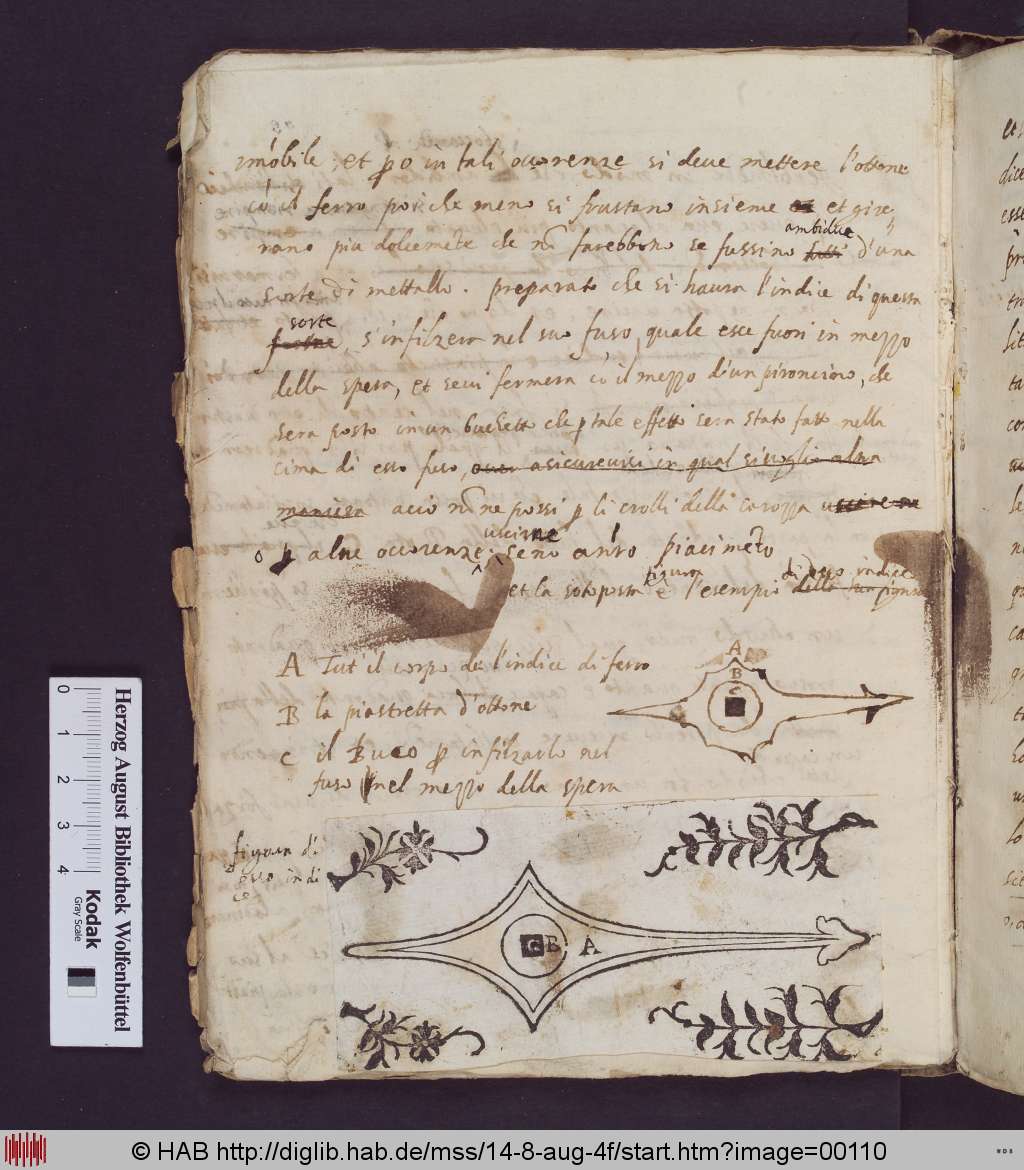 imobile, et po in tali ocorenze si deve mettere l'ottone
cò il ferro poi che meno si frustano insieme et gire
rano piu dolcemete che nõ farebbono se fussino ambidue d'una
sorte di mettallo. preparato che si haura l'indice di questa
sorte, s'infilzera nel suo fuso, quale esce fuori in mezzo
della spera, et sevi fermera cò il mezzo d'un pironcino, che
sera posto in un buchetto che p tale effetto sera stato fatto nella
cima di esso fuso, asicurevisi in qual si voglia altra
maniera acciò nõ ne possi p li crolli della carozza uscire ne
o p altre occorenze uscirne senò an̄ro piacimeto
et la sotoposta figura è l'esempio di esso indice
A Tut' il corpo de l'indice di ferro
B la piastretta d'ottone
C il Buco p infilzarlo nel
fuso nel mezzo della spera
A
B
C
figura d'
esso indi
ce
C B A
Herzog August Bibliothek Wolfenbüttel
0 1 2 3 4
Kodak
Gray Scale
© HAB http://diglib.hab.de/mss/14-8-aug-4f/start.htm?image=00110